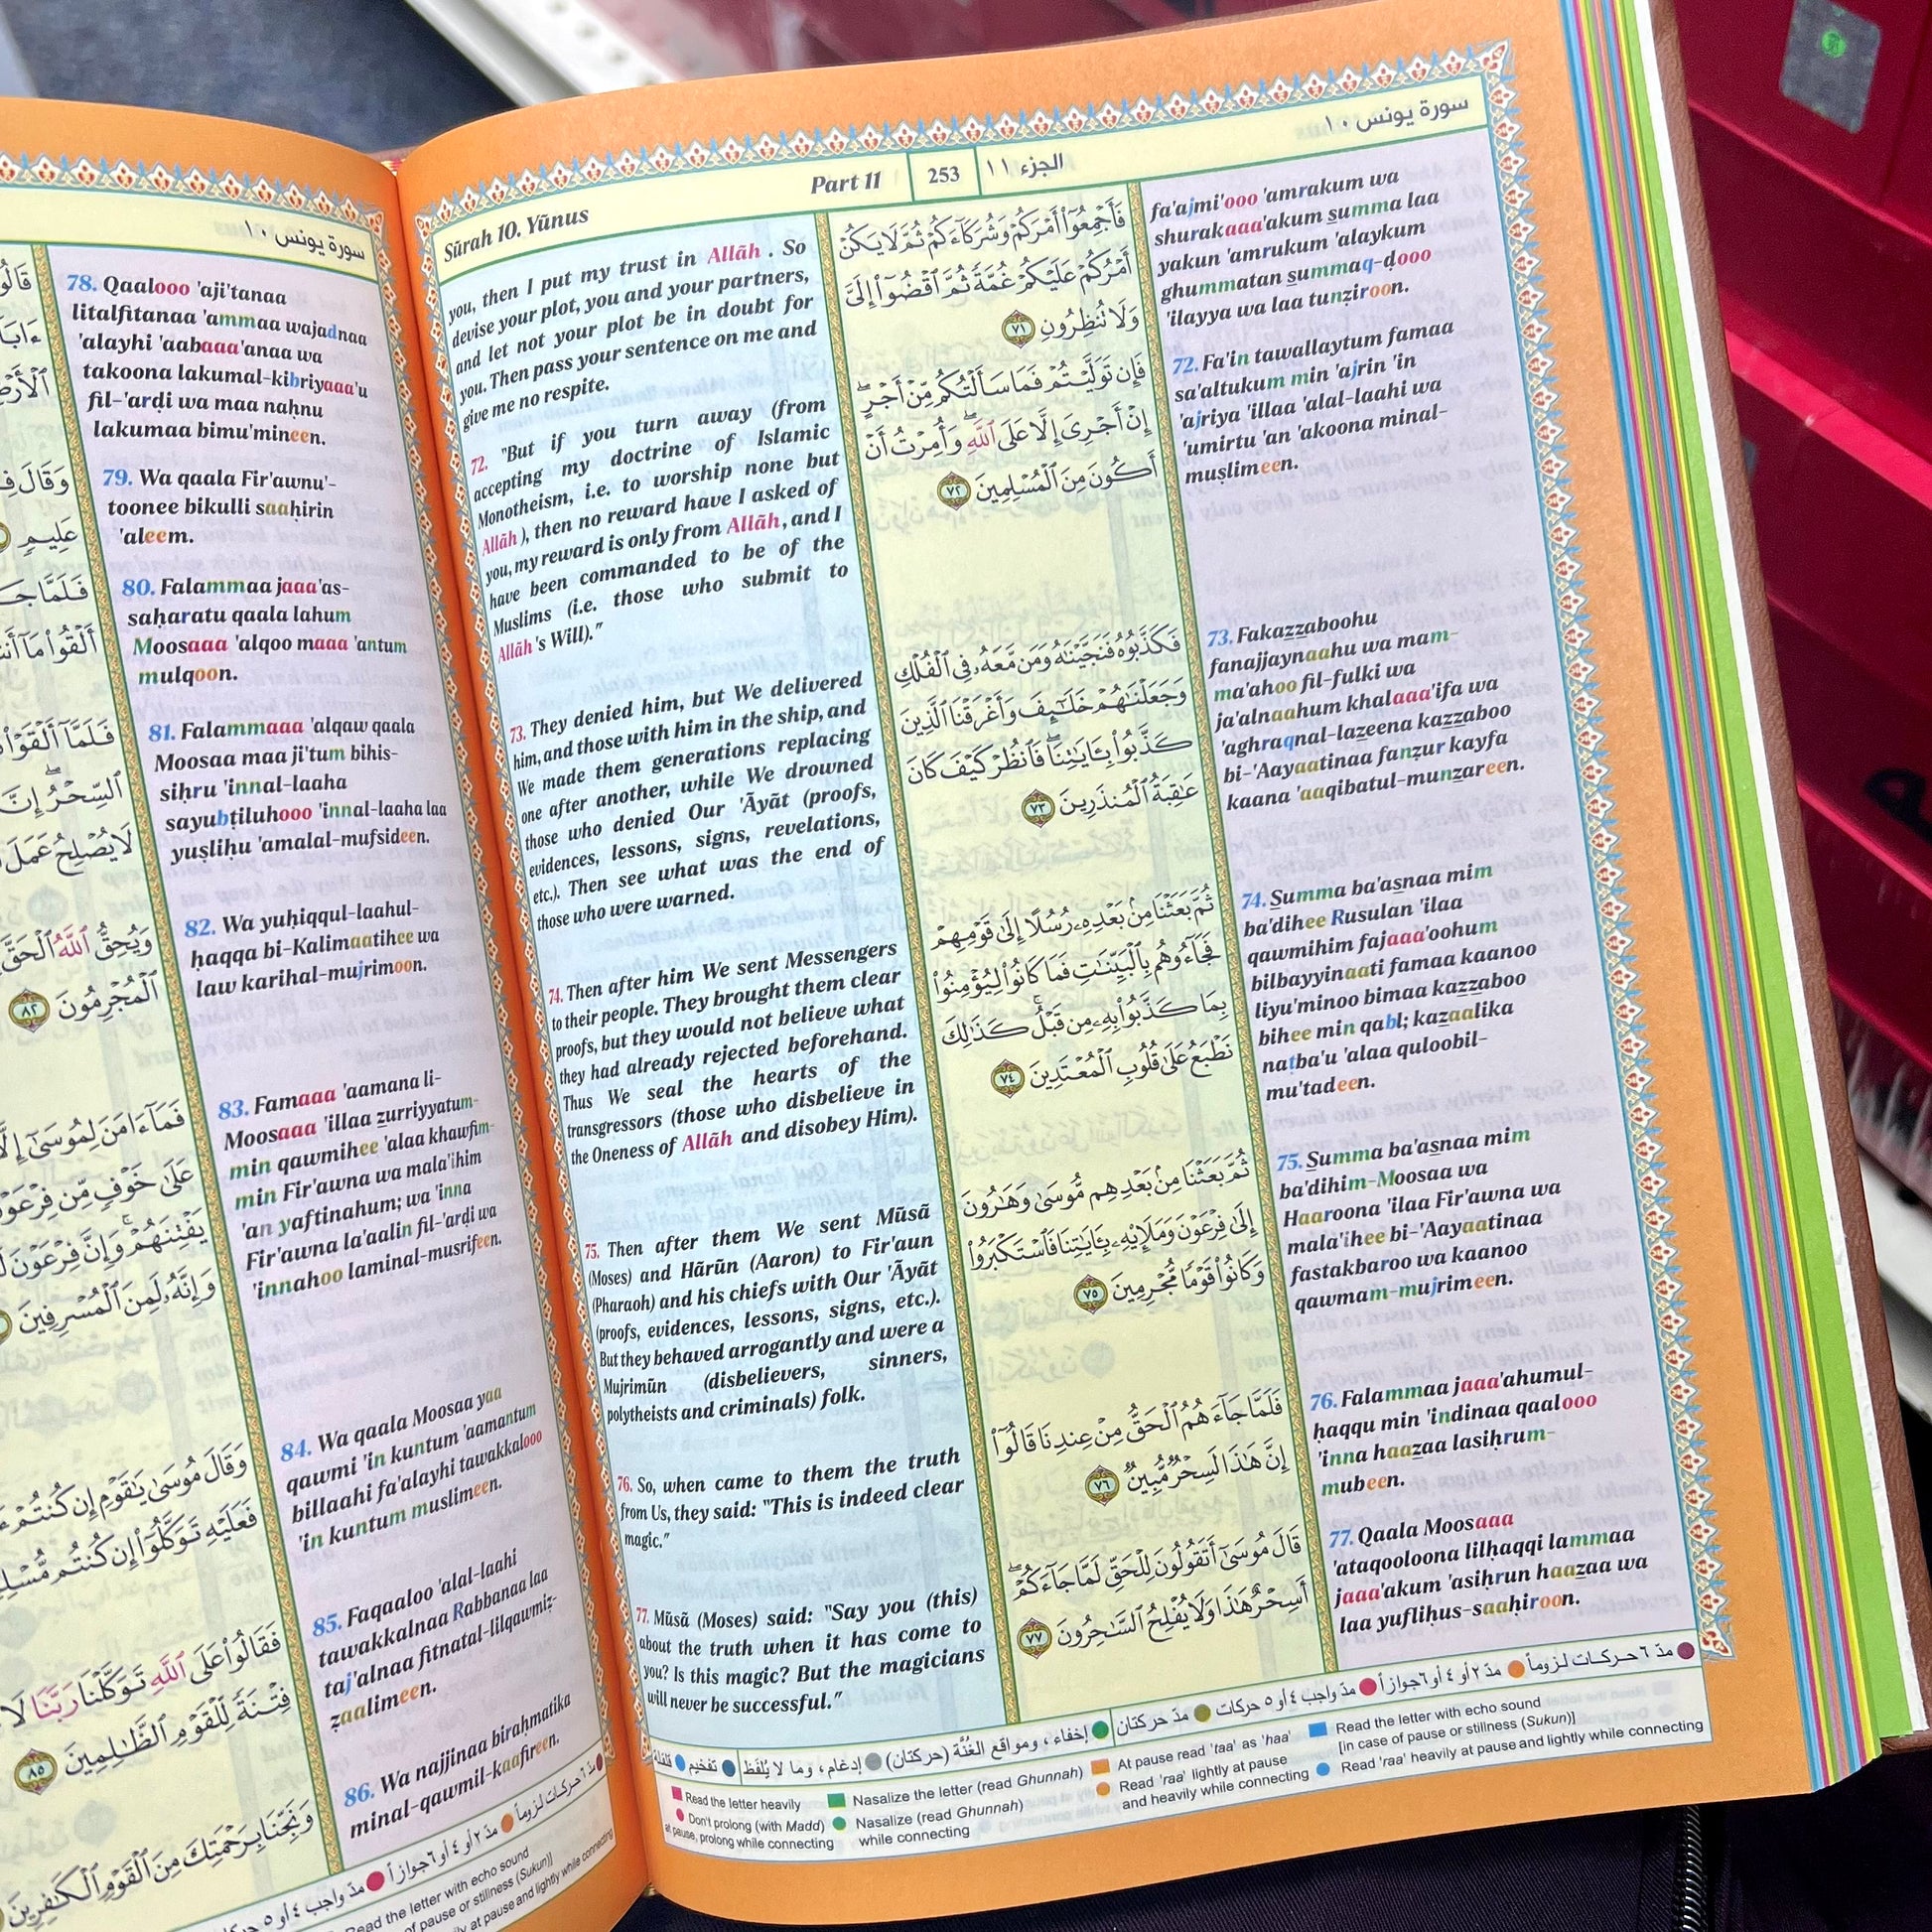 سورة يونس ١٠
78. Qaalooo 'aji'tanaa
litalfitanaa 'ammaa wajadnaa
'alayhi 'aabaaa'anaa wa
takoona lakumal-kibriyaaa'u
fil-'arḍi wa maa naḥnu
lakumaa bimu'mineen.
79. Wa qaala Fir'awnu'-
toonee bikulli saaḥirin
'aleem.
80. Falammaa jaaa'as-
saḥaratu qaala lahum
Moosaaa 'alqoo maaa 'antum
mulqoon.
81. Falammaaa 'alqaw qaala
Moosaa maa ji'tum bihis-
siḥru 'innal-laaha
sayubṭiluhooo 'innal-laaha laa
yuṣliḥu 'amalal-mufsideen.
82. Wa yuḥiqqul-laahul-
ḥaqqa bi-Kalimaatihee wa
law karihal-mujrimoon.
83. Famaaa 'aamana li-
Moosaaa 'illaa zurriyyatum-
min qawmihee 'alaa khawfim-
min Fir'awna wa mala'ihim
'an yaftinahum; wa 'inna
Fir'awna la'aalin fil-'arḍi wa
'innahoo laminal-musrifeen.
84. Wa qaala Moosaa yaa
qawmi 'in kuntum 'aamantum
billaahi fa'alayhi tawakkalooo
'in kuntum muslimeen.
85. Faqaaloo 'alal-laahi
tawakkalnaa Rabbanaa laa
taj'alnaa fitnatal-lilqawmiẓ-
ẓaalimeen.
86. Wa najjinaa biraḥmatika
minal-qawmil-kaafireen.
وَقَالَ
عَلِيمٍ
أَلْقُوا۟ مَآ
فَلَمَّآ أَلْقَوْا۟
ٱلسِّحْرُ ۖ إِنَّ
لَا يُصْلِحُ عَمَلَ
وَيُحِقُّ ٱللَّهُ ٱلْحَقَّ
ٱلْمُجْرِمُونَ ٨٢
فَمَآ ءَامَنَ لِمُوسَىٰٓ
عَلَىٰ خَوْفٍ مِّن فِرْعَوْنَ
يَفْتِنَهُمْ ۚ وَإِنَّ فِرْعَوْنَ
وَإِنَّهُۥ لَمِنَ ٱلْمُسْرِفِينَ
وَقَالَ مُوسَىٰ يَٰقَوْمِ إِن كُنتُمْ
فَعَلَيْهِ تَوَكَّلُوٓا۟ إِن كُنتُم
فَقَالُوا۟ عَلَى ٱللَّهِ تَوَكَّلْنَا رَبَّنَا لَا
فِتْنَةً لِّلْقَوْمِ ٱلظَّٰلِمِينَ ٨٥
وَنَجِّنَا بِرَحْمَتِكَ مِنَ ٱلْقَوْمِ ٱلْكَٰفِرِينَ
مدّ ٦ حركات لزوماً مدّ ٢ أو ٤ أو ٦ جوازاً مدّ واجب ٤ أو ٥
Read the letter with echo sound
of pause or stillness (Sukun)]
at pause and lightly while connecting
Sūrah 10. Yūnus
Part 11
253
الجزء ١١
سورة يونس ١٠
you, then I put my trust in Allāh . So
devise your plot, you and your partners,
and let not your plot be in doubt for
you. Then pass your sentence on me and
give me no respite.
72. "But if you turn away (from
accepting my doctrine of Islamic
Monotheism, i.e. to worship none but
Allāh ), then no reward have I asked of
you, my reward is only from Allāh, and I
have been commanded to be of the
Muslims (i.e. those who submit to
Allāh's Will)."
73. They denied him, but We delivered
him, and those with him in the ship, and
We made them generations replacing
one after another, while We drowned
those who denied Our 'Āyāt (proofs,
evidences, lessons, signs, revelations,
etc.). Then see what was the end of
those who were warned.
74. Then after him We sent Messengers
to their people. They brought them clear
proofs, but they would not believe what
they had already rejected beforehand.
Thus We seal the hearts of the
transgressors (those who disbelieve in
the Oneness of Allāh and disobey Him).
75. Then after them We sent Mūsā
(Moses) and Hārūn (Aaron) to Fir'aun
(Pharaoh) and his chiefs with Our 'Āyāt
(proofs, evidences, lessons, signs, etc.).
But they behaved arrogantly and were a
Mujrimūn (disbelievers, sinners,
polytheists and criminals) folk.
76. So, when came to them the truth
from Us, they said: "This is indeed clear
magic."
77. Mūsā (Moses) said: "Say you (this)
about the truth when it has come to
you? Is this magic? But the magicians
will never be successful."
فَأَجْمِعُوٓا۟ أَمْرَكُمْ وَشُرَكَآءَكُمْ ثُمَّ لَا يَكُنْ
أَمْرُكُمْ عَلَيْكُمْ غُمَّةً ثُمَّ ٱقْضُوٓا۟ إِلَىَّ
وَلَا تُنظِرُونِ ٧١
فَإِن تَوَلَّيْتُمْ فَمَا سَأَلْتُكُم مِّنْ أَجْرٍ ۖ
إِنْ أَجْرِىَ إِلَّا عَلَى ٱللَّهِ ۖ وَأُمِرْتُ أَنْ
أَكُونَ مِنَ ٱلْمُسْلِمِينَ ٧٢
فَكَذَّبُوهُ فَنَجَّيْنَٰهُ وَمَن مَّعَهُۥ فِى ٱلْفُلْكِ
وَجَعَلْنَٰهُمْ خَلَٰٓئِفَ وَأَغْرَقْنَا ٱلَّذِينَ
كَذَّبُوا۟ بِـَٔايَٰتِنَا ۖ فَٱنظُرْ كَيْفَ كَانَ
عَٰقِبَةُ ٱلْمُنذَرِينَ ٧٣
ثُمَّ بَعَثْنَا مِنۢ بَعْدِهِۦ رُسُلًا إِلَىٰ قَوْمِهِمْ
فَجَآءُوهُم بِٱلْبَيِّنَٰتِ فَمَا كَانُوا۟ لِيُؤْمِنُوا۟
بِمَا كَذَّبُوا۟ بِهِۦ مِن قَبْلُ ۚ كَذَٰلِكَ
نَطْبَعُ عَلَىٰ قُلُوبِ ٱلْمُعْتَدِينَ ٧٤
ثُمَّ بَعَثْنَا مِنۢ بَعْدِهِم مُّوسَىٰ وَهَٰرُونَ
إِلَىٰ فِرْعَوْنَ وَمَلَإِي۟هِۦ بِـَٔايَٰتِنَا فَٱسْتَكْبَرُوا۟
وَكَانُوا۟ قَوْمًا مُّجْرِمِينَ ٧٥
فَلَمَّا جَآءَهُمُ ٱلْحَقُّ مِنْ عِندِنَا قَالُوٓا۟
إِنَّ هَٰذَا لَسِحْرٌ مُّبِينٌ ٧٦
قَالَ مُوسَىٰٓ أَتَقُولُونَ لِلْحَقِّ لَمَّا جَآءَكُمْ ۖ
أَسِحْرٌ هَٰذَا وَلَا يُفْلِحُ ٱلسَّٰحِرُونَ ٧٧
fa'ajmi'ooo 'amrakum wa
shurakaaa'akum summa laa
yakun 'amrukum 'alaykum
ghummatan summaq-ḍooo
'ilayya wa laa tunẓiroon.
72. Fa'in tawallaytum famaa
sa'altukum min 'ajrin 'in
'ajriya 'illaa 'alal-laahi wa
'umirtu 'an 'akoona minal-
muṣlimeen.
73. Fakazzaboohu
fanajjaynaahu wa mam-
ma'ahoo fil-fulki wa
ja'alnaahum khalaaa'ifa wa
'aghraqnal-lazeena kazzaboo
bi-'Aayaatinaa fanẓur kayfa
kaana 'aaqibatul-munzareen.
74. Summa ba'asnaa mim
ba'dihee Rusulan 'ilaa
qawmihim fajaaa'oohum
bilbayyinaati famaa kaanoo
liyu'minoo bimaa kazzaboo
bihee min qabl; kazaalika
naṭba'u 'alaa quloobil-
mu'tadeen.
75. Summa ba'asnaa mim
ba'dihim-Moosaa wa
Haaroona 'ilaa Fir'awna wa
mala'ihee bi-'Aayaatinaa
fastakbaroo wa kaanoo
qawmam-mujrimeen.
76. Falammaa jaaa'ahumul-
ḥaqqu min 'indinaa qaalooo
'inna haazaa lasiḥrum-
mubeen.
77. Qaala Moosaaa
'ataqooloona lilḥaqqi lammaa
jaaa'akum 'asiḥrun haazaa wa
laa yuflihus-saaḥiroon.
مدّ ٦ حركات لزوماً مدّ ٢ أو ٤ أو ٦ جوازاً مدّ واجب ٤ أو ٥ حركات مدّ حركتان إخفاء، ومواقع الغُنَّة (حركتان) إدغام، وما لا يُلفَظ تفخيم قلقلة
Read the letter heavily
Don't prolong (with Madd)
at pause, prolong while connecting
Nasalize the letter (read Ghunnah)
Nasalize (read Ghunnah)
while connecting
At pause read 'taa' as 'haa'
Read 'raa' lightly at pause
and heavily while connecting
Read the letter with echo sound
[in case of pause or stillness (Sukun)]
Read 'raa' heavily at pause and lightly while connecting